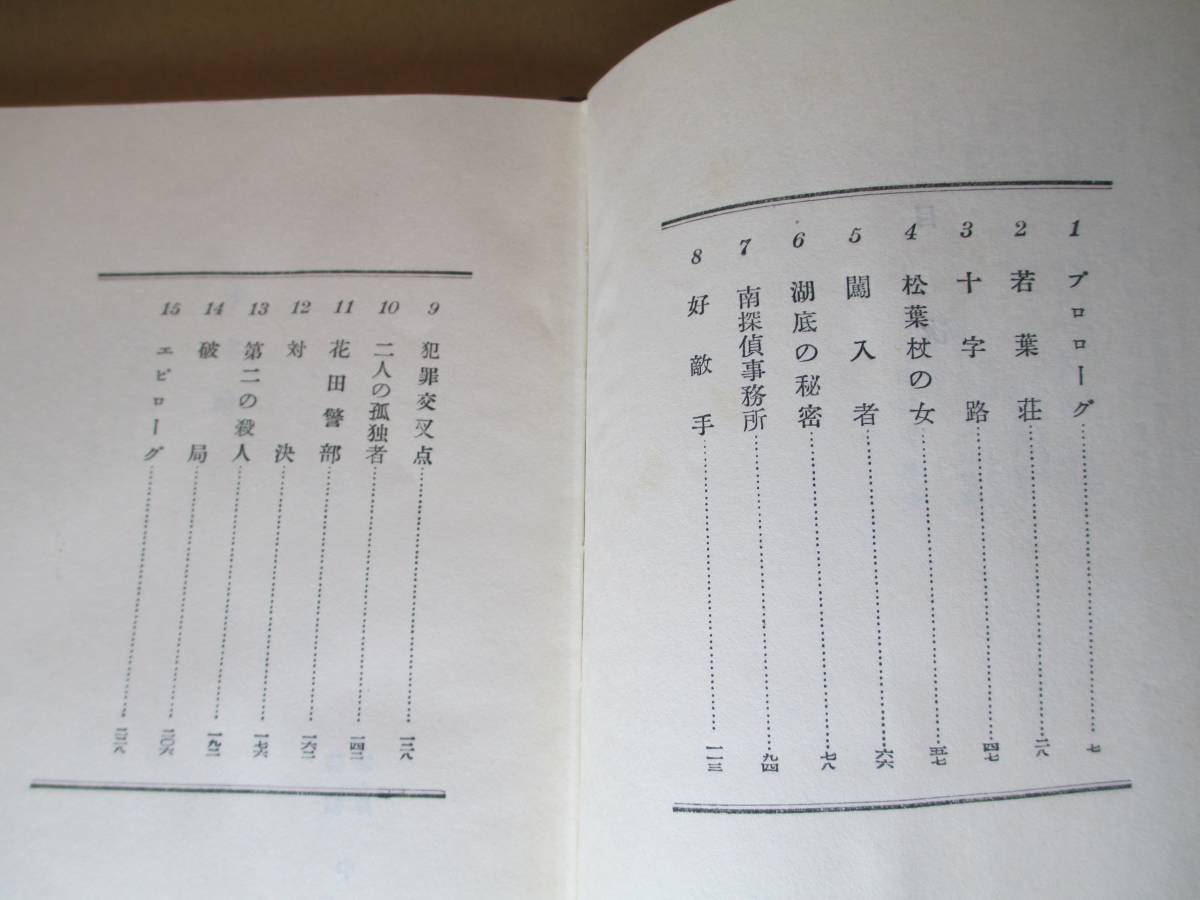 1 プロローグ……七
2 若葉荘……二八
3 十字路……四七
4 松葉杖の女……五七
5 闖入者……六六
6 湖底の秘密……七八
7 南探偵事務所……九四
8 好敵手……一一三
9 犯罪交叉点……一二八
10 二人の孤独者……一四二
11 花田警部……一六二
12 対決……一七六
13 第二の殺人……一九二
14 破局……二〇六
15 エピローグ……二三八